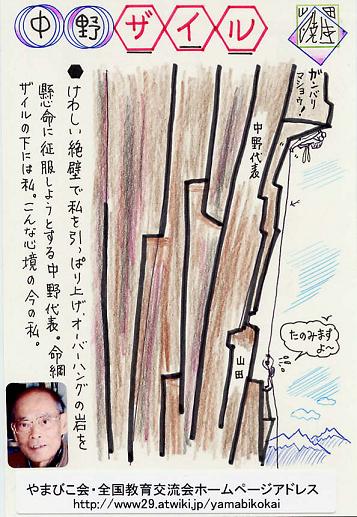 中野ザイル
ガンバリ
マショウ!
中野代表
⬢けわしい絶壁で私を引っぱり上げ、オーバーハングの岩を
懸命に征服しようとする中野代表。命綱
ザイルの下には私。こんな心境の今の私。
たのみます
よ〜
山田
やまびこ会・全国教育交流会ホームページアドレス
http://www29.atwiki.jp/yamabikokai